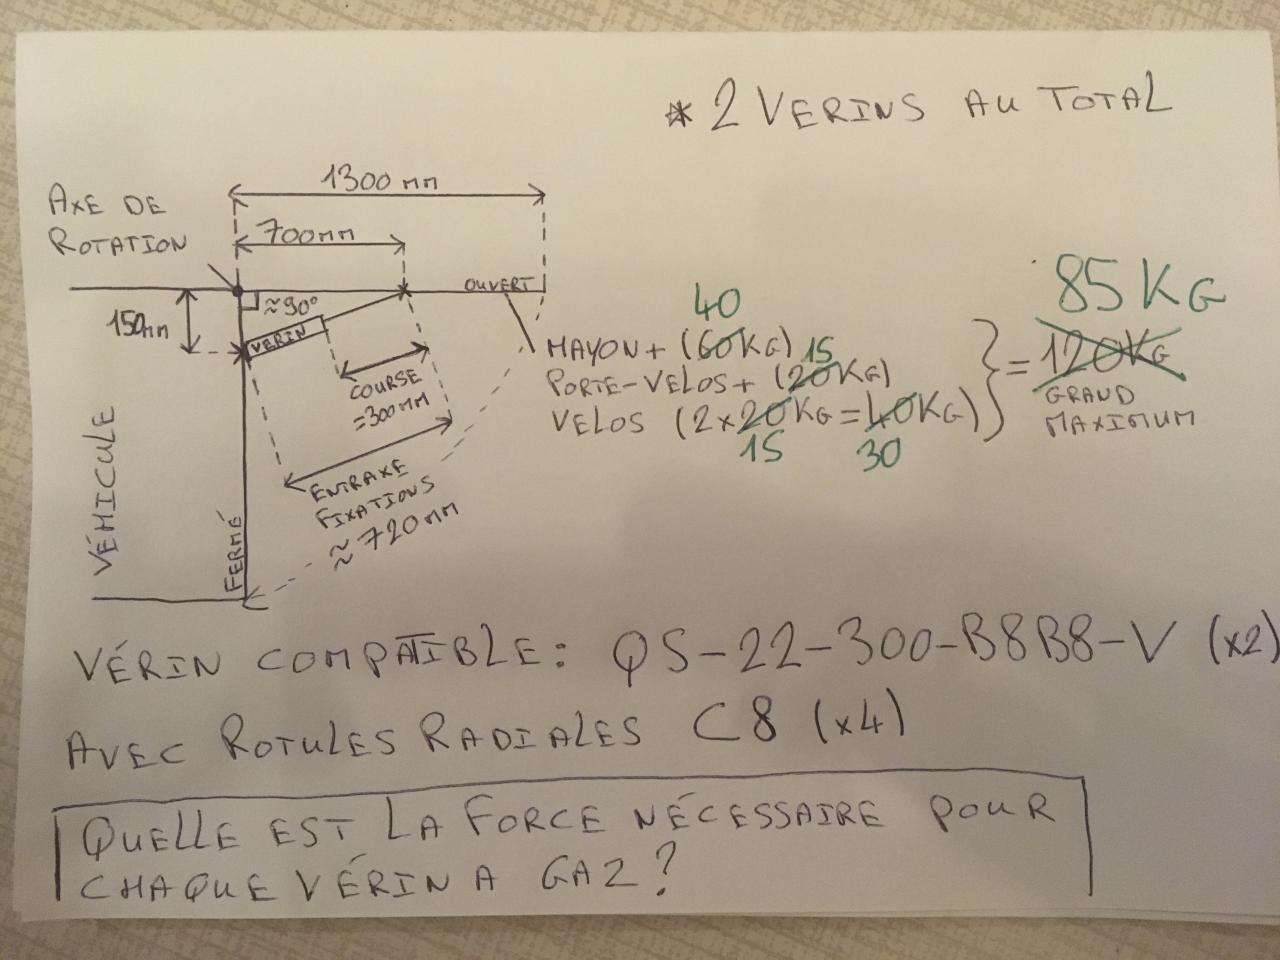 * 2 VERINS AU TOTAL
1300 mm
AXE DE
ROTATION
700mm
OUVERT
≈90°
150mm
VERIN
COURSE
=300MM
ENTRAXE
FIXATIONS
≈ 720mm
VÉHICULE
FERMÉ
40
HAYON + (60KG)
15
PORTE-VELOS + (20KG)
VELOS (2x20KG=40KG)
15 30
85 KG
= 120KG
GRAND
MAXIMUM
VÉRIN COMPATIBLE: QS-22-300-B8B8-V (x2)
AVEC ROTULES RADIALES C8 (x4)
QUELLE EST LA FORCE NÉCESSAIRE POUR
CHAQUE VÉRIN A GAZ?